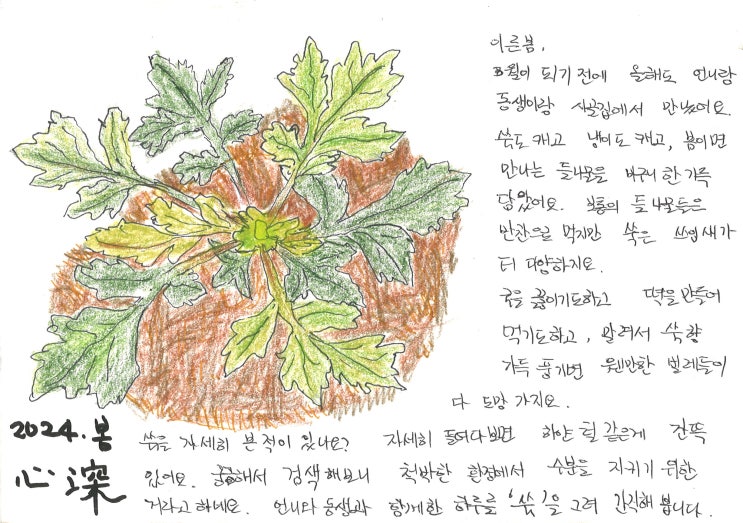 이른봄,
3월이 되기 전에 올해도 언니랑
동생이랑 시골집에서 만났어요.
쑥도 캐고 냉이도 캐고, 봄이면
만나는 들나물을 바구니 한가득
담았어요. 보통의 들나물들은
반찬으로 먹지만 쑥은 쓰임새가
더 다양하지요.
국을 끓이기도하고 떡을 만들어
먹기도하고, 말려서 쑥향
가득 풍기면 웬만한 벌레들이
다 도망 가지요.
쑥을 자세히 본 적이 있나요? 자세히 들여다보면 하얀 털 같은게 잔뜩
있어요. 궁금해서 검색해보니 척박한 환경에서 수분을 지키기 위한
거라고 하네요. 언니와 동생과 함께한 하루를 '쑥'을 그려 간직해 봅니다.
2024. 봄
心深